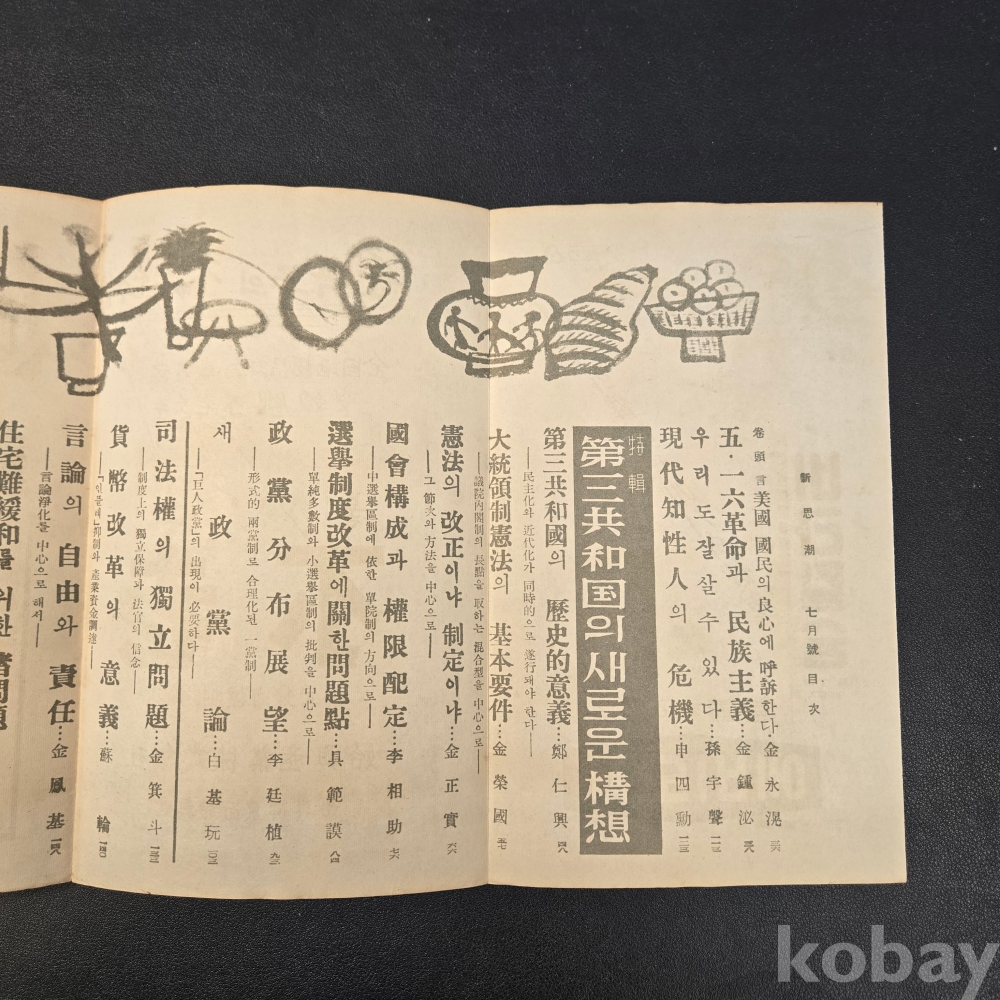 新思潮 七月號目次
卷頭言 美國 國民의 良心에 呼訴한다 金永滉
五·一六革命과 民族主義…金鍾泌
우리도 잘 살 수 있다…孫宇聲
現代知性人의 危機…申四勳
特輯
第三共和国의 새로운 構想
第三共和國의 歷史的意義…鄭仁興
——民主化와 近代化가 同時的으로 遂行돼야 한다——
大統領制憲法의 基本要件…金榮國
——議院內閣制의 長點을 取하는 混合型을 中心으로——
憲法의 改正이냐 制定이냐…金正實
——그 節次와 方法을 中心으로——
國會構成과 權限配定…李相助
——中選擧區制에 依한 單院制의 方向으로——
選擧制度改革에 關한 問題點…具範謨
——單純多數制와 小選擧區制의 批判을 中心으로——
政黨分布展望…李廷植 九二
——形式的 兩黨制로 合理化된 一黨制——
새政黨論…白基玩
——「巨人政黨」의 出現이 必要하다——
司法權의 獨立問題…金箕斗
——制度上의 獨立保障과 法官의 信念——
貨幣改革의 意義…蘇輪
——「인플레」抑制와 產業資金調達——
言論의 自由와 責任…金鳳基
——言論淨化를 中心으로 해서——
住宅難緩和를 위한 諸問題
kobay